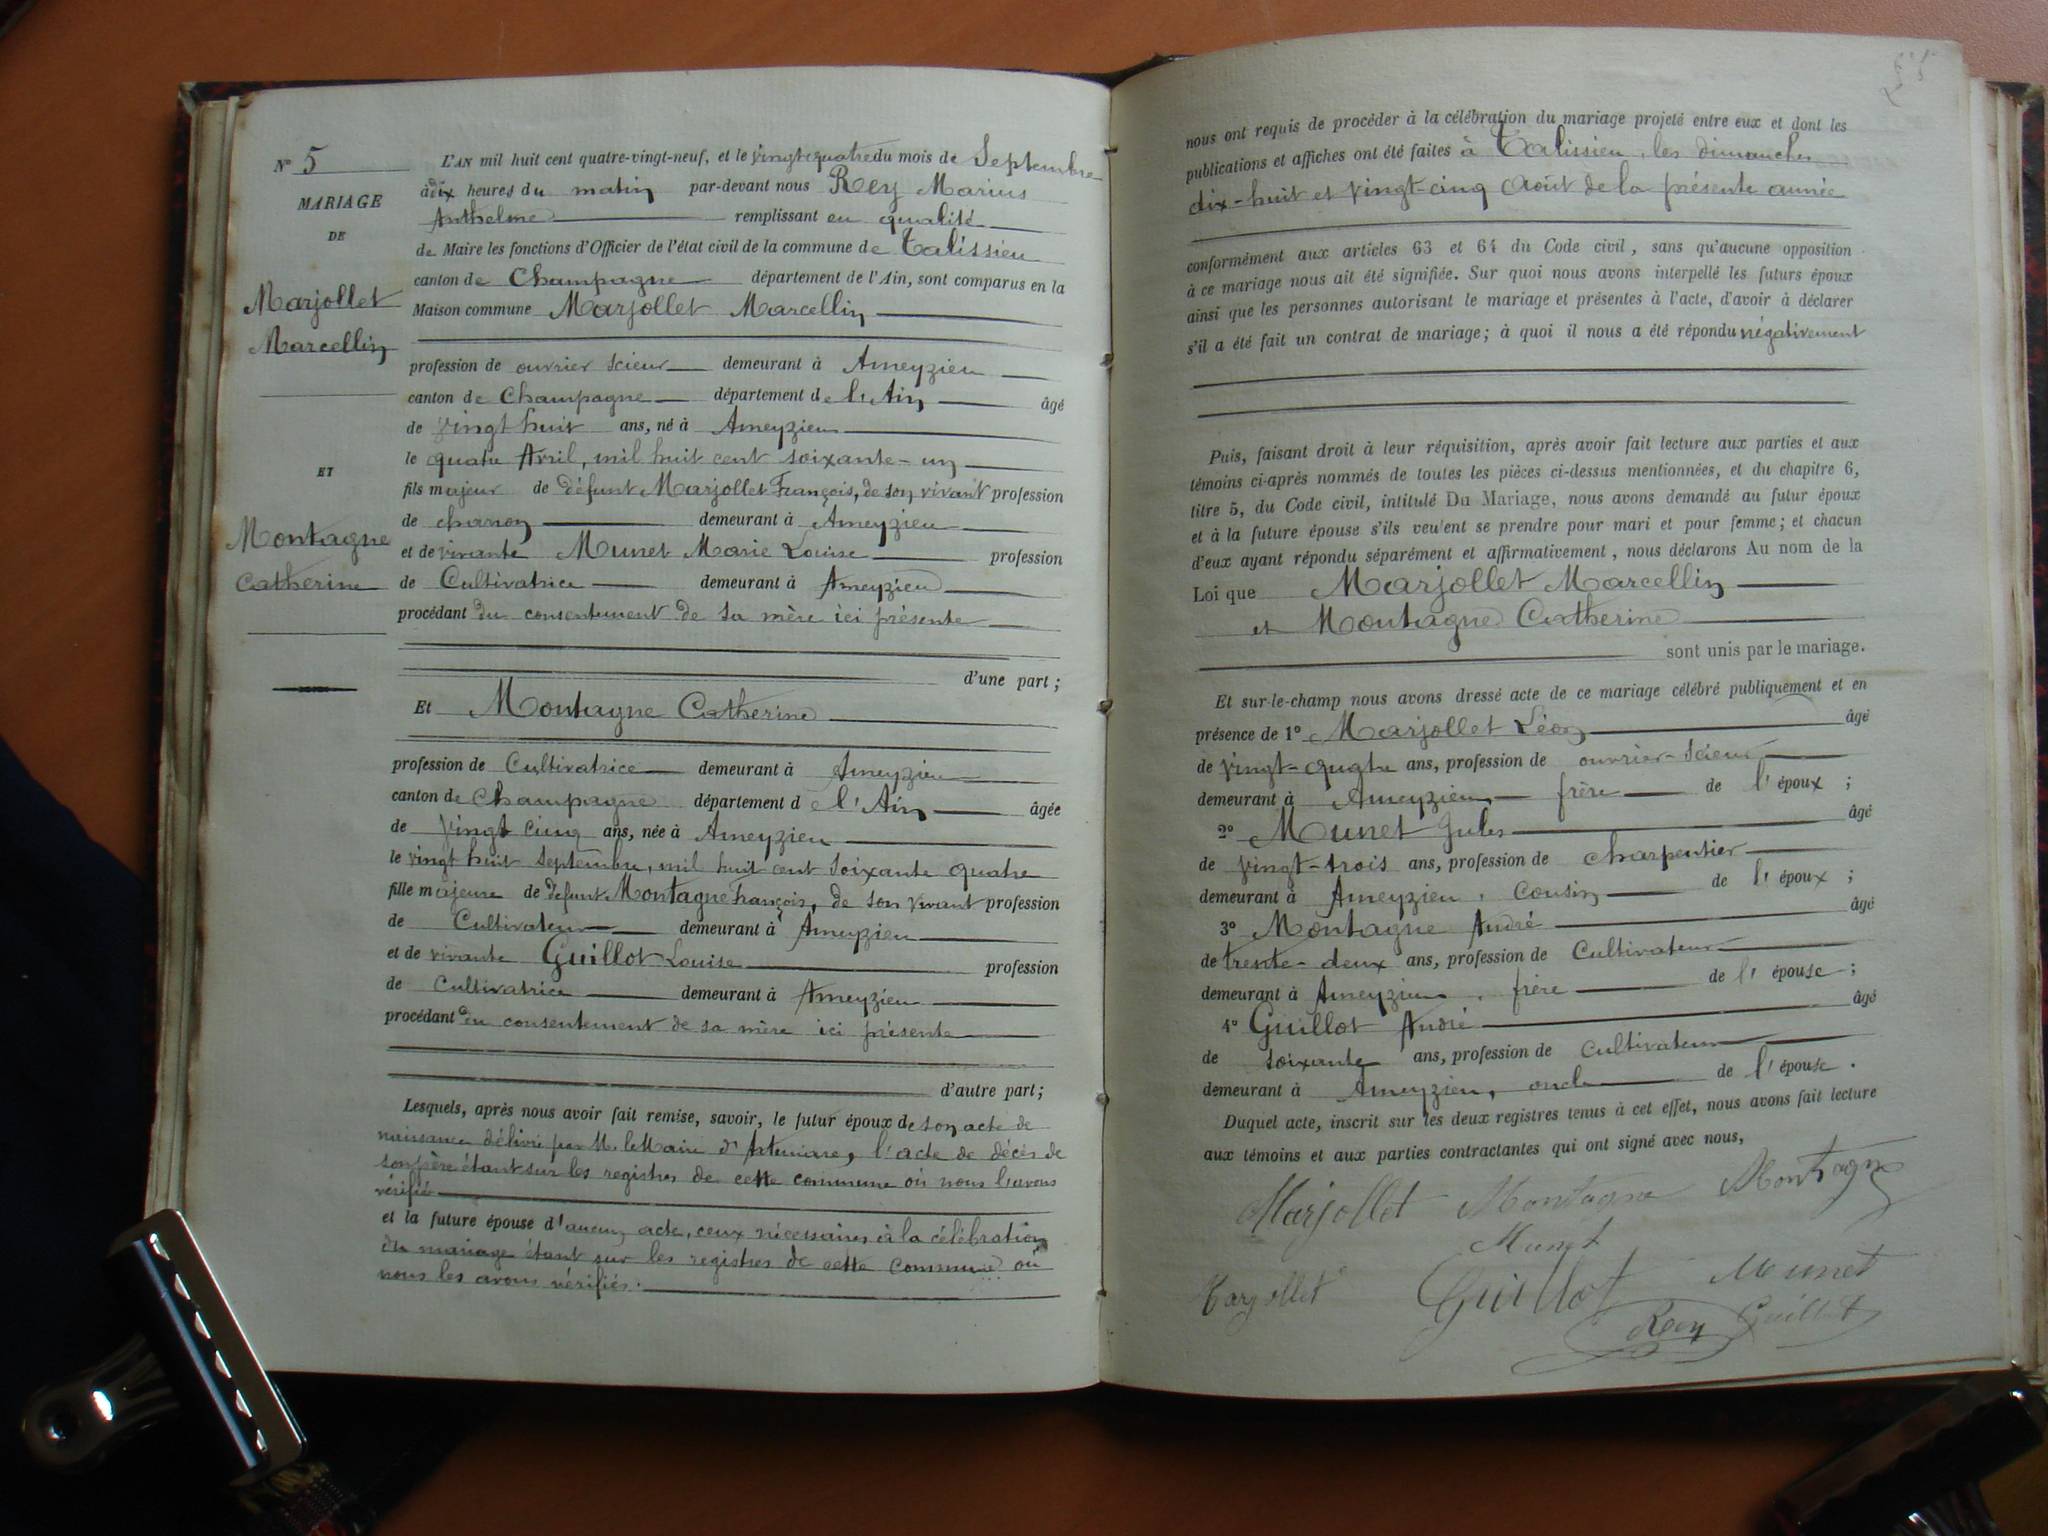 N° 5
MARIAGE
DE
Marjollet
Marcellin
ET
Montagne
Catherine
L'AN mil huit cent quatre-vingt-neuf, et le vingt quatre du mois de Septembre
à dix heures du matin par-devant nous Rey Marius
Anthelme remplissant en qualité
de Maire les fonctions d'Officier de l'état civil de la commune de Talissieu
canton de Champagne département de l'Ain, sont comparus en la
Maison commune Marjollet Marcellin
profession de ouvrier scieur demeurant à Ameyzieu
canton de Champagne département de l'Ain âgé
de vingt huit ans, né à Ameyzieu
le quatre Avril, mil huit cent soixante-un
fils majeur de défunt Marjollet François, de son vivant profession
de charron demeurant à Ameyzieu
et de vivante Munet Marie Louise profession
de Cultivatrice demeurant à Ameyzieu
procédant du consentement de sa mère ici présente
d'une part ;
Et Montagne Catherine
profession de Cultivatrice demeurant à Ameyzieu
canton de Champagne département de l'Ain âgée
de vingt cinq ans, née à Ameyzieu
le vingt huit septembre, mil huit cent soixante quatre
fille majeure de defunt Montagne François, de son vivant profession
de Cultivateur demeurant à Ameyzieu
et de vivante Guillot Louise profession
de Cultivatrice demeurant à Ameyzieu
procédant du consentement de sa mère ici présente
d'autre part ;
Lesquels, après nous avoir fait remise, savoir, le futur époux de son acte de
naissance délivré par M. le Maire d'Artemare, l'acte de décès de
son père étant sur les registres de cette commune où nous l'avons
vérifié
et la future épouse d'aucun acte, ceux nécessaires à la célébration
du mariage étant sur les registres de cette commune où
nous les avons vérifiés.
nous ont requis de procéder à la célébration du mariage projeté entre eux et dont les
publications et affiches ont été faites à Talissieu, les dimanches
dix-huit et vingt-cinq Août de la présente année
conformément aux articles 63 et 64 du Code civil, sans qu'aucune opposition
à ce mariage nous ait été signifiée. Sur quoi nous avons interpellé les futurs époux
ainsi que les personnes autorisant le mariage et présentes à l'acte, d'avoir à déclarer
s'il a été fait un contrat de mariage ; à quoi il nous a été répondu négativement
Puis, faisant droit à leur réquisition, après avoir fait lecture aux parties et aux
témoins ci-après nommés de toutes les pièces ci-dessus mentionnées, et du chapitre 6,
titre 5, du Code civil, intitulé Du Mariage, nous avons demandé au futur époux
et à la future épouse s'ils veulent se prendre pour mari et pour femme ; et chacun
d'eux ayant répondu séparément et affirmativement, nous déclarons Au nom de la
Loi que Marjollet Marcellin
et Montagne Catherine
sont unis par le mariage.
Et sur-le-champ nous avons dressé acte de ce mariage célébré publiquement et en
présence de 1° Marjollet Léon âgé
de vingt-quatre ans, profession de ouvrier-scieur
demeurant à Ameyzieu frère de l'époux ;
2° Munet Jules âgé
de vingt-trois ans, profession de charpentier
demeurant à Ameyzieu, cousin de l'époux ;
3° Montagne André âgé
de trente-deux ans, profession de Cultivateur
demeurant à Ameyzieu, frère de l'épouse ;
4° Guillot André âgé
de soixante ans, profession de cultivateur
demeurant à Ameyzieu, oncle de l'épouse.
Duquel acte, inscrit sur les deux registres tenus à cet effet, nous avons fait lecture
aux témoins et aux parties contractantes qui ont signé avec nous,
Marjollet Montagne Montagne
Munet
Marjollet Guillot Munet
Rey Guillot